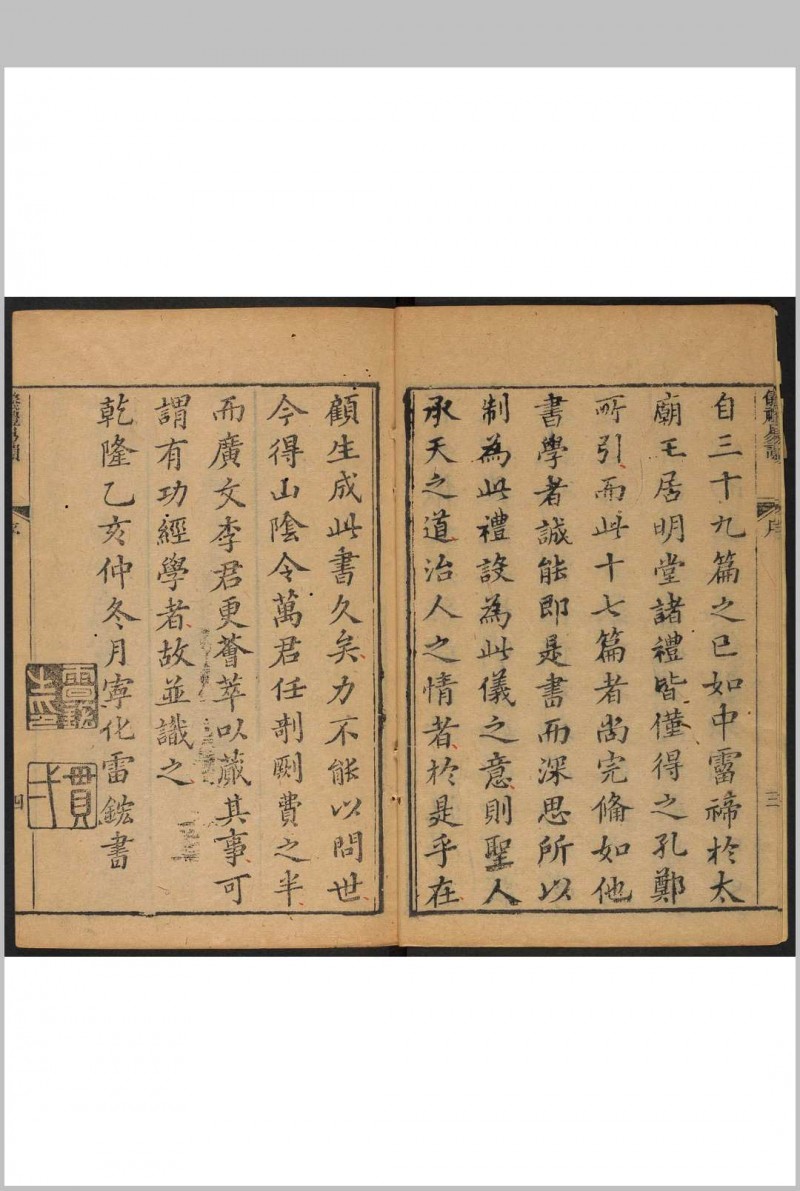 儀禮易讀
序
三
自三十九篇之已如中霤禘於太
廟王居明堂諸禮皆僅得之孔鄭
所引而此十七篇者尚完備如他
書學者誠能即是書而深思所以
制為此禮設為此儀之意則聖人
承天之道治人之情者於是乎在
顧生成此書久矣力不能以問世
今得山陰令萬君任剞劂費之半
而廣文李君更薈萃以蕆其事可
謂有功經學者故並識之
乾隆乙亥仲冬月寧化雷鋐書
雷鋐
貫一
四